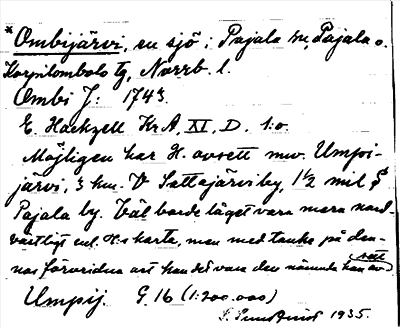 * Ombijärvi, en sjö i Pajala sn, Pajala o.
Korpilombolo tg, Norrb. l.
Ombi J: 1743.
E. Hackzell KrA, XI, D. 1:o.
Möjligen har H. avsett nuv. Umpi-
järvi, 3 km. V Sattajärvi by, 1½ mil S
Pajala by. Väl borde läget vara mera nord-
västligt enl. H:s karta, men med tanke på den-
nas förvridna art kan det vara den nämnda han avsett
Umpij. G. 16 (1:200.000)
1935.